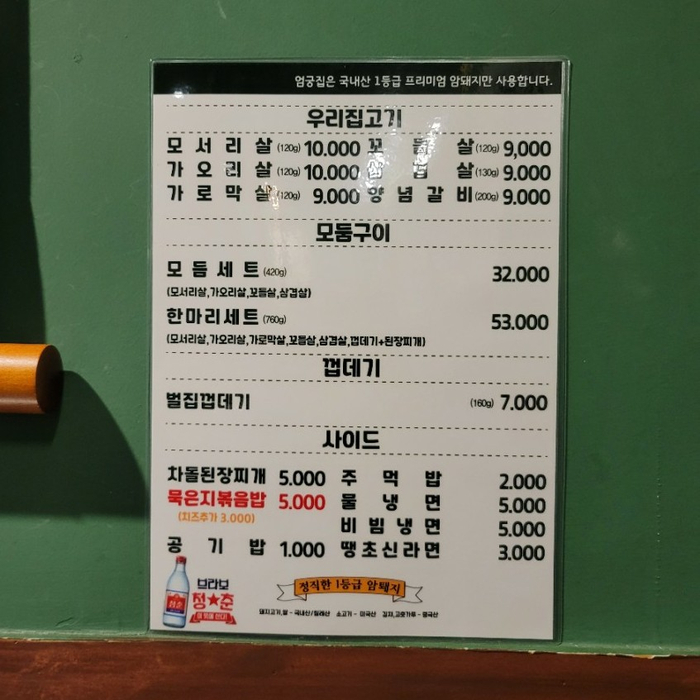 엄궁집은 국내산 1등급 프리미엄 암돼지만 사용합니다.
우리집고기
모서리살 (120g) 10.000 꼬들살 (120g) 9,000
가오리살 (120g) 10.000 삼겹살 (130g) 9.000
가로막살 (120g) 9.000 양념갈비 (200g) 9.000
모둠구이
모듬세트 (420g) 32.000
(모서리살,가오리살,꼬들살,삼겹살)
한마리세트 (760g) 53.000
(모서리살,가오리살,가로막살,꼬들살,삼겹살,껍데기+된장찌개)
껍데기
벌집껍데기 (160g) 7.000
사이드
차돌된장찌개 5.000 주먹밥 2.000
묵은지볶음밥 5.000 물냉면 5.000
(치즈추가 3.000) 비빔냉면 5.000
공기밥 1.000 땡초신라면 3.000
정직한 1등급 암돼지
브라보
정★춘
돼지고기,쌀 - 국내산 소고기 - 미국산 김치,고춧가루 - 중국산